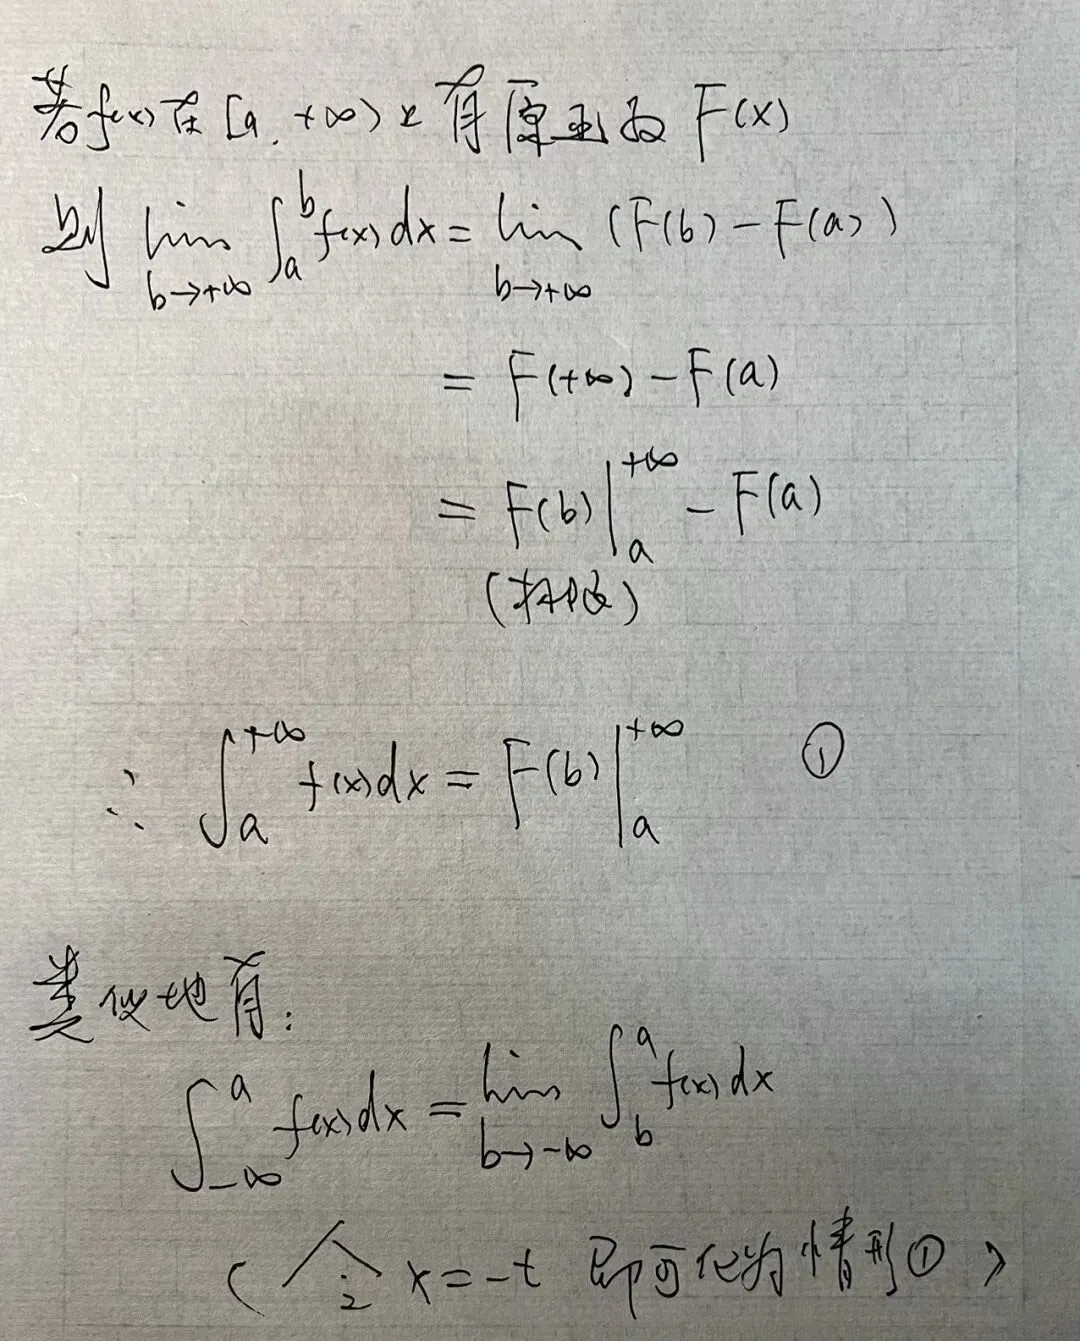 若f(x)在[a,+∞)上有原函数为F(x)
则 lim b→+∞ ∫_a^b f(x)dx = lim b→+∞ (F(b)-F(a))
= F(+∞)-F(a)
= F(b)|_a^{+∞} - F(a)
∴ ∫_a^{+∞} f(x)dx = F(b)|_a^{+∞} ①
类似地有:
∫_{-∞}^a f(x)dx = lim b→-∞ ∫_b^a f(x)dx
(令 x=-t 即可化为情形①)